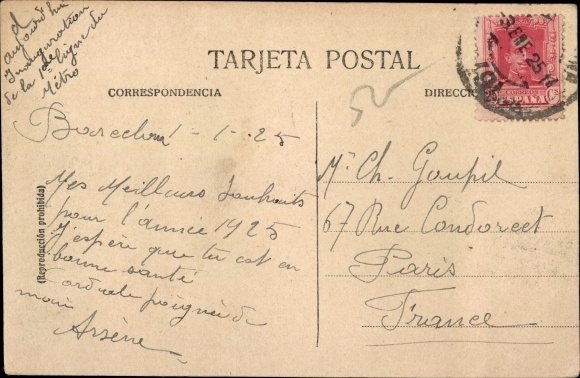 aujourd'hui
Inauguration
de la 1ère ligne du
Métro
TARJETA POSTAL
CORRESPONDENCIA
DIRECCI
Barcelona 1-1-25
Mes Meilleurs Souhaits
pour l'année 1925
J'espère que tu est en
bonne santé
Cordiale poignée de
main
Arsène
(Reproducción prohibida)
52
ENE 25
ESPAÑA
Cs
Mr Ch. Goupil
67 Rue Condorcet
Paris
France